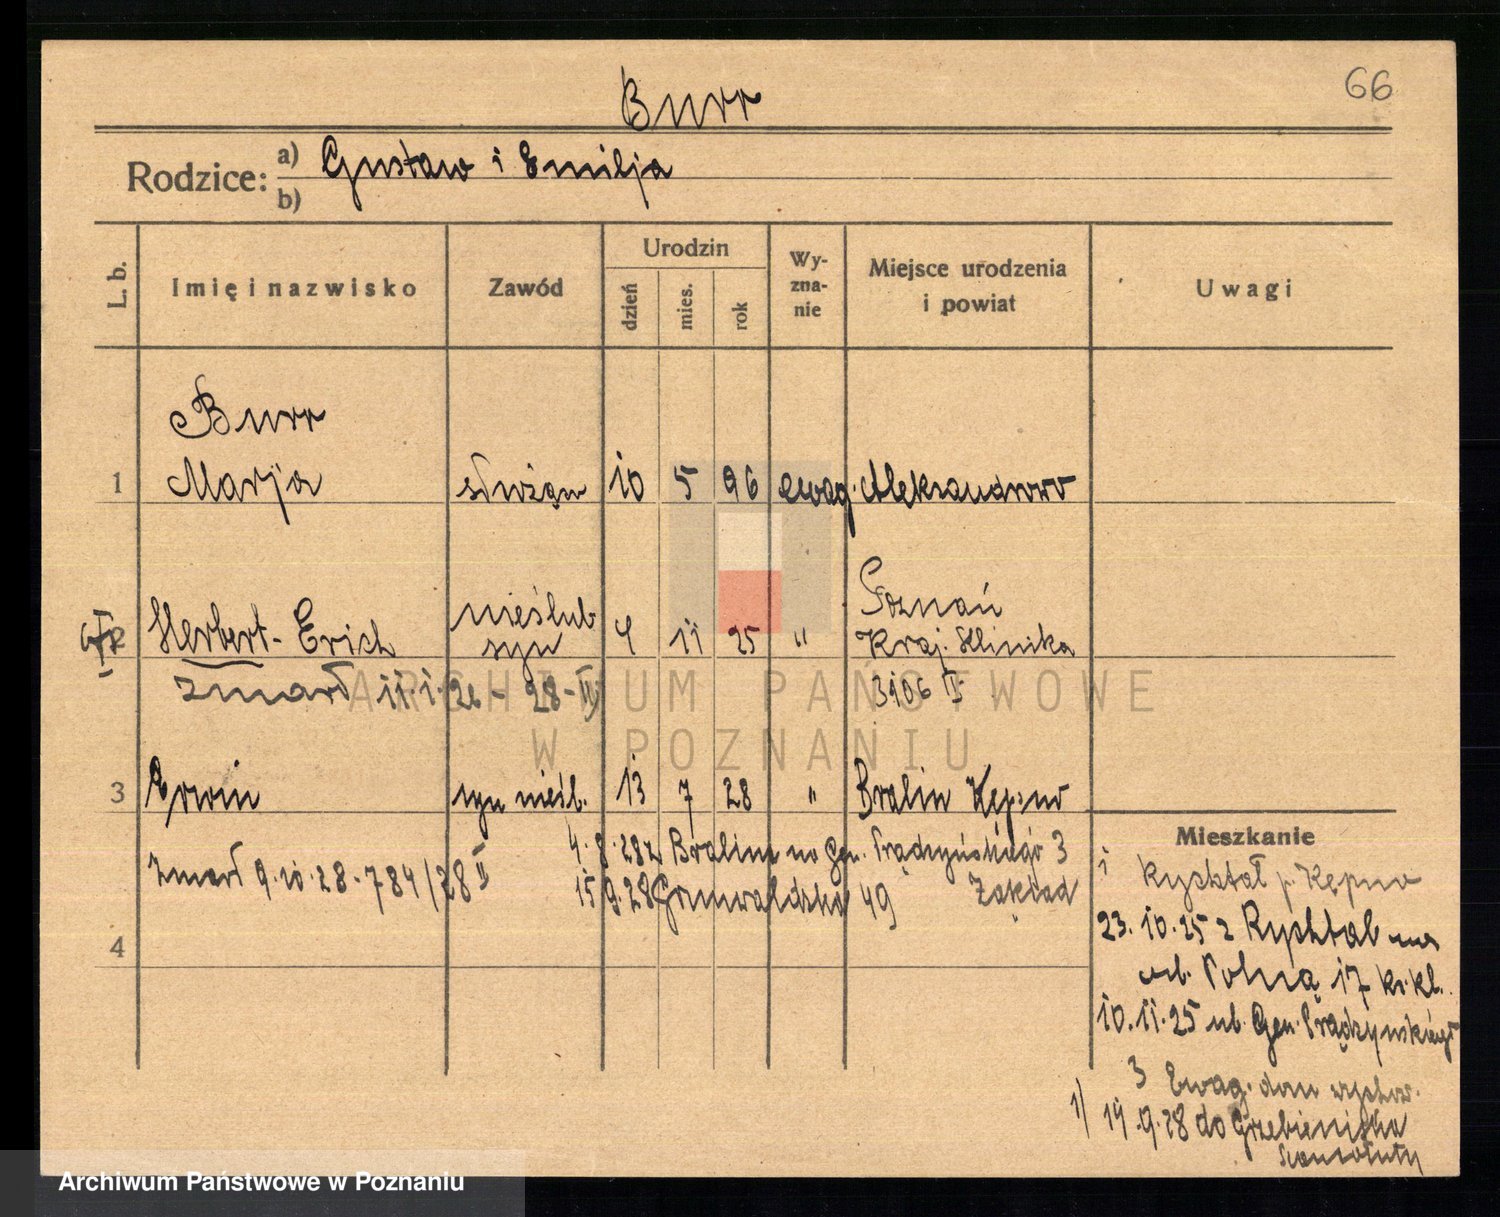 66
Burr
Rodzice: a) Gustaw i Emilja
b)
L. b. Imię i nazwisko Zawód Urodzin dzień mies. rok Wy-zna-nie Miejsce urodzenia i powiat Uwagi
Burr
1 Marja służąca 10 5 96 ewag. Aleksandrowo
nieślub Poznań
Herbert-Erich syn 4 11 25 " Kraj. Klinika
zmarł 11.1.26 - 28-II 3106 I
3 Erwin syn nieśl. 13 7 28 " Bralin Kępno
Mieszkanie
4.8.28 z Bralina na Gen. Prądzyńskiego 3
zmarł 9.10.28-784/28 II 15.9.28 Grunwaldzka 49 Zakład
4
1 Rychtal p. Kępno
23.10.25 z Rychtal na
ul. Polną 17 kr. kl.
10.11.25 ul. Gen. Prądzyńskiego
3 Ewag. dom wychow.
1) 19.9.28 do Grzebieniska
Szamotuły
ARCHIWUM PAŃSTWOWE
W POZNANIU
Archiwum Państwowe w Poznaniu